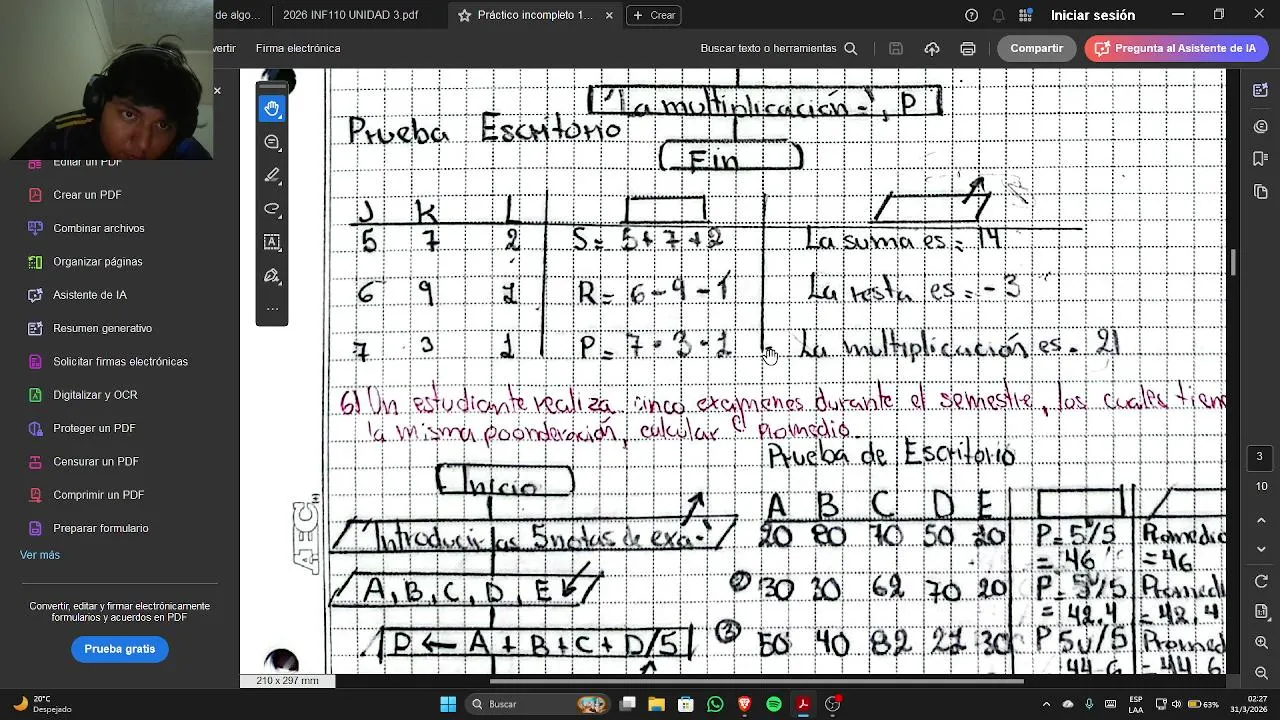 de algo...
2026 INF110 UNIDAD 3.pdf
Práctico incompleto 1...
Crear
Iniciar sesión
vertir
Firma electrónica
Buscar texto o herramientas
Compartir
Pregunta al Asistente de IA
Editar un PDF
Crear un PDF
Combinar archivos
Organizar páginas
Asistente de IA
Resumen generativo
Solicitar firmas electrónicas
Digitalizar y OCR
Proteger un PDF
Censurar un PDF
Comprimir un PDF
Preparar formulario
Ver más
Convertir, editar y firmar electrónicamente formularios y acuerdos en PDF
Prueba gratis
"La multiplicación=", P
Prueba Escritorio
Fin
J K L
5 7 2 S= 5+7+2 La suma es= 14
6 9 1 R= 6-9-1 La resta es=-3
7 3 1 P= 7·3·1 La multiplicación es= 21
6) Un estudiante realiza cinco examenes durante el semestre, los cuales tiene
la misma poonderación, calcular el Promedio.
Prueba de Escritorio
Inicio
"Introducir las 5 notas de exa-"
A, B, C, D, E
P ← A + B + C + D/5
A B C D E
20 80 70 50 P= 5 /5 Promedio
= 46 = 46
② 30 30 62 70 20 P= 5 /5 Promedi
= 42,4 = 42,4
③ 50 40 82 30 P 5 /5 Promed
44 6 = 44 6
AEC
210 x 297 mm
3
10
20°C
Despejado
Buscar
ESP
LAA
63%
02:27
31/3/2026